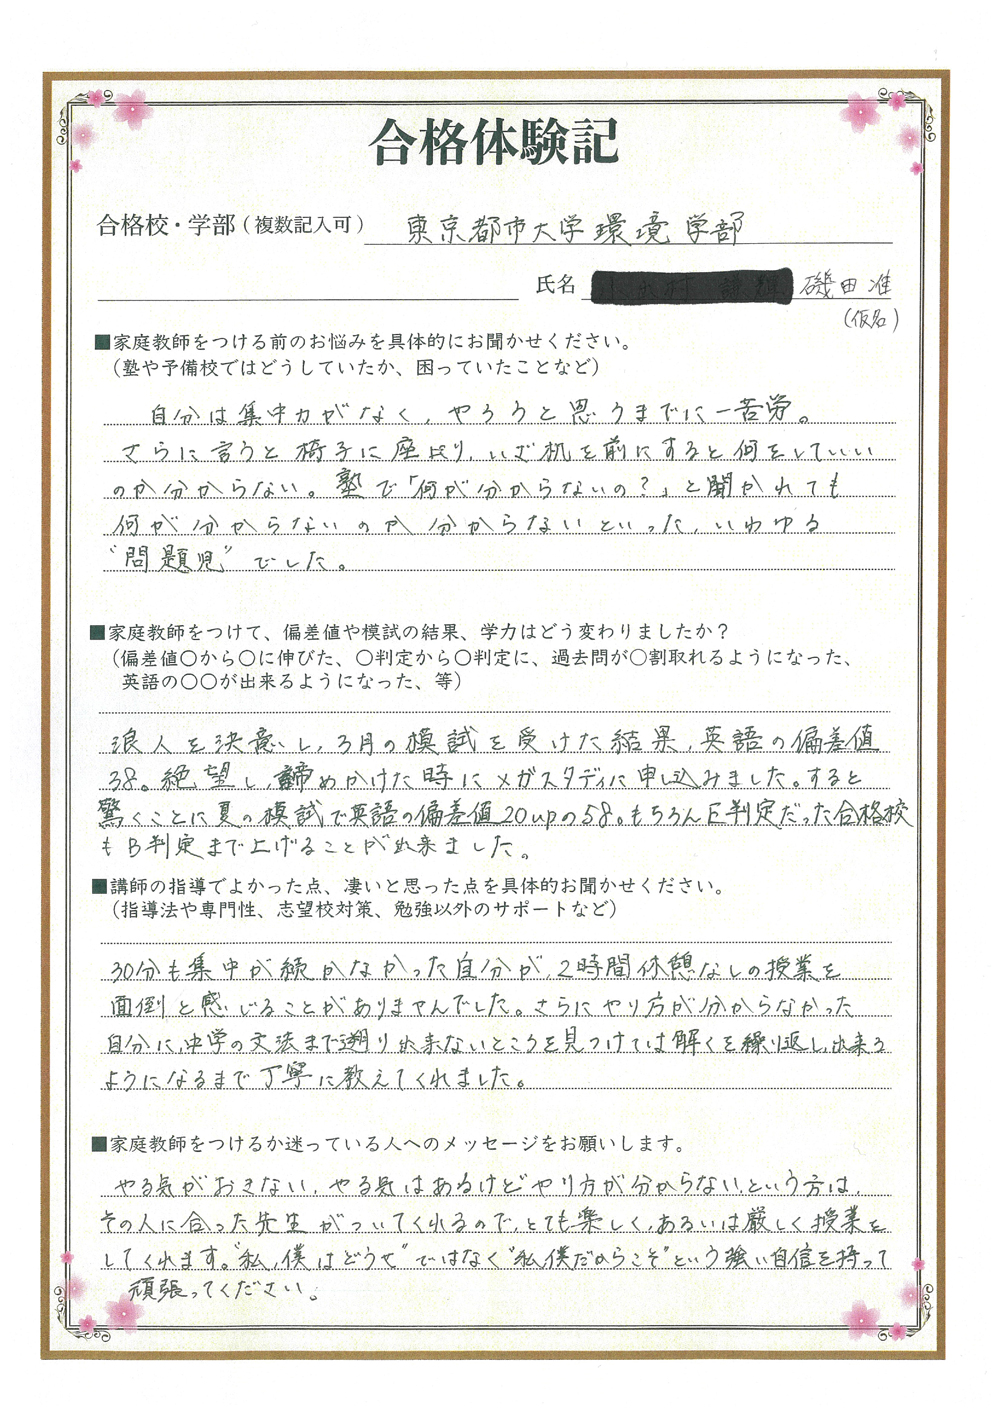 合格体験記
合格校・学部（複数記入可） 東京都市大学 環境 学部
氏名 磯田 准
(仮名)
■家庭教師をつける前のお悩みを具体的にお聞かせください。
（塾や予備校ではどうしていたか、困っていたことなど）
自分は集中力がなく、やろうと思うまでに一苦労。
さらに言うと椅子に座り、いざ机を前にすると何をしていい
のか分からない。塾で「何が分からないの？」と聞かれても
何が分からないのか分からないといった、いわゆる
“問題児”でした。
■家庭教師をつけて、偏差値や模試の結果、学力はどう変わりましたか？
（偏差値〇から〇に伸びた、〇判定から〇判定に、過去問が〇割取れるようになった、
英語の〇〇が出来るようになった、等）
浪人を決意し、3月の模試を受けた結果、英語の偏差値
38。絶望し、諦めかけた時にメガスタディに申し込みました。すると
驚くことに夏の模試で英語の偏差値20upの58。もちろんE判定だった合格校
もB判定まで上げることが出来ました。
■講師の指導でよかった点、凄いと思った点を具体的お聞かせください。
（指導法や専門性、志望校対策、勉強以外のサポートなど）
30分も集中が続かなかった自分が、2時間休憩なしの授業を
面倒と感じることがありませんでした。さらにやり方が分からなかった
自分に、中学の文法まで遡り出来ないところを見つけては解くを繰り返し、出来る
ようになるまで丁寧に教えてくれました。
■家庭教師をつけるか迷っている人へのメッセージをお願いします。
やる気がおきない、やる気はあるけどやり方が分からない、という方は、
その人に合った先生がついてくれるので、とても楽しく、あるいは厳しく授業を
してくれます。“私、僕はどうせ”ではなく“私、僕だからこそ”という強い自信を持って
頑張ってください。